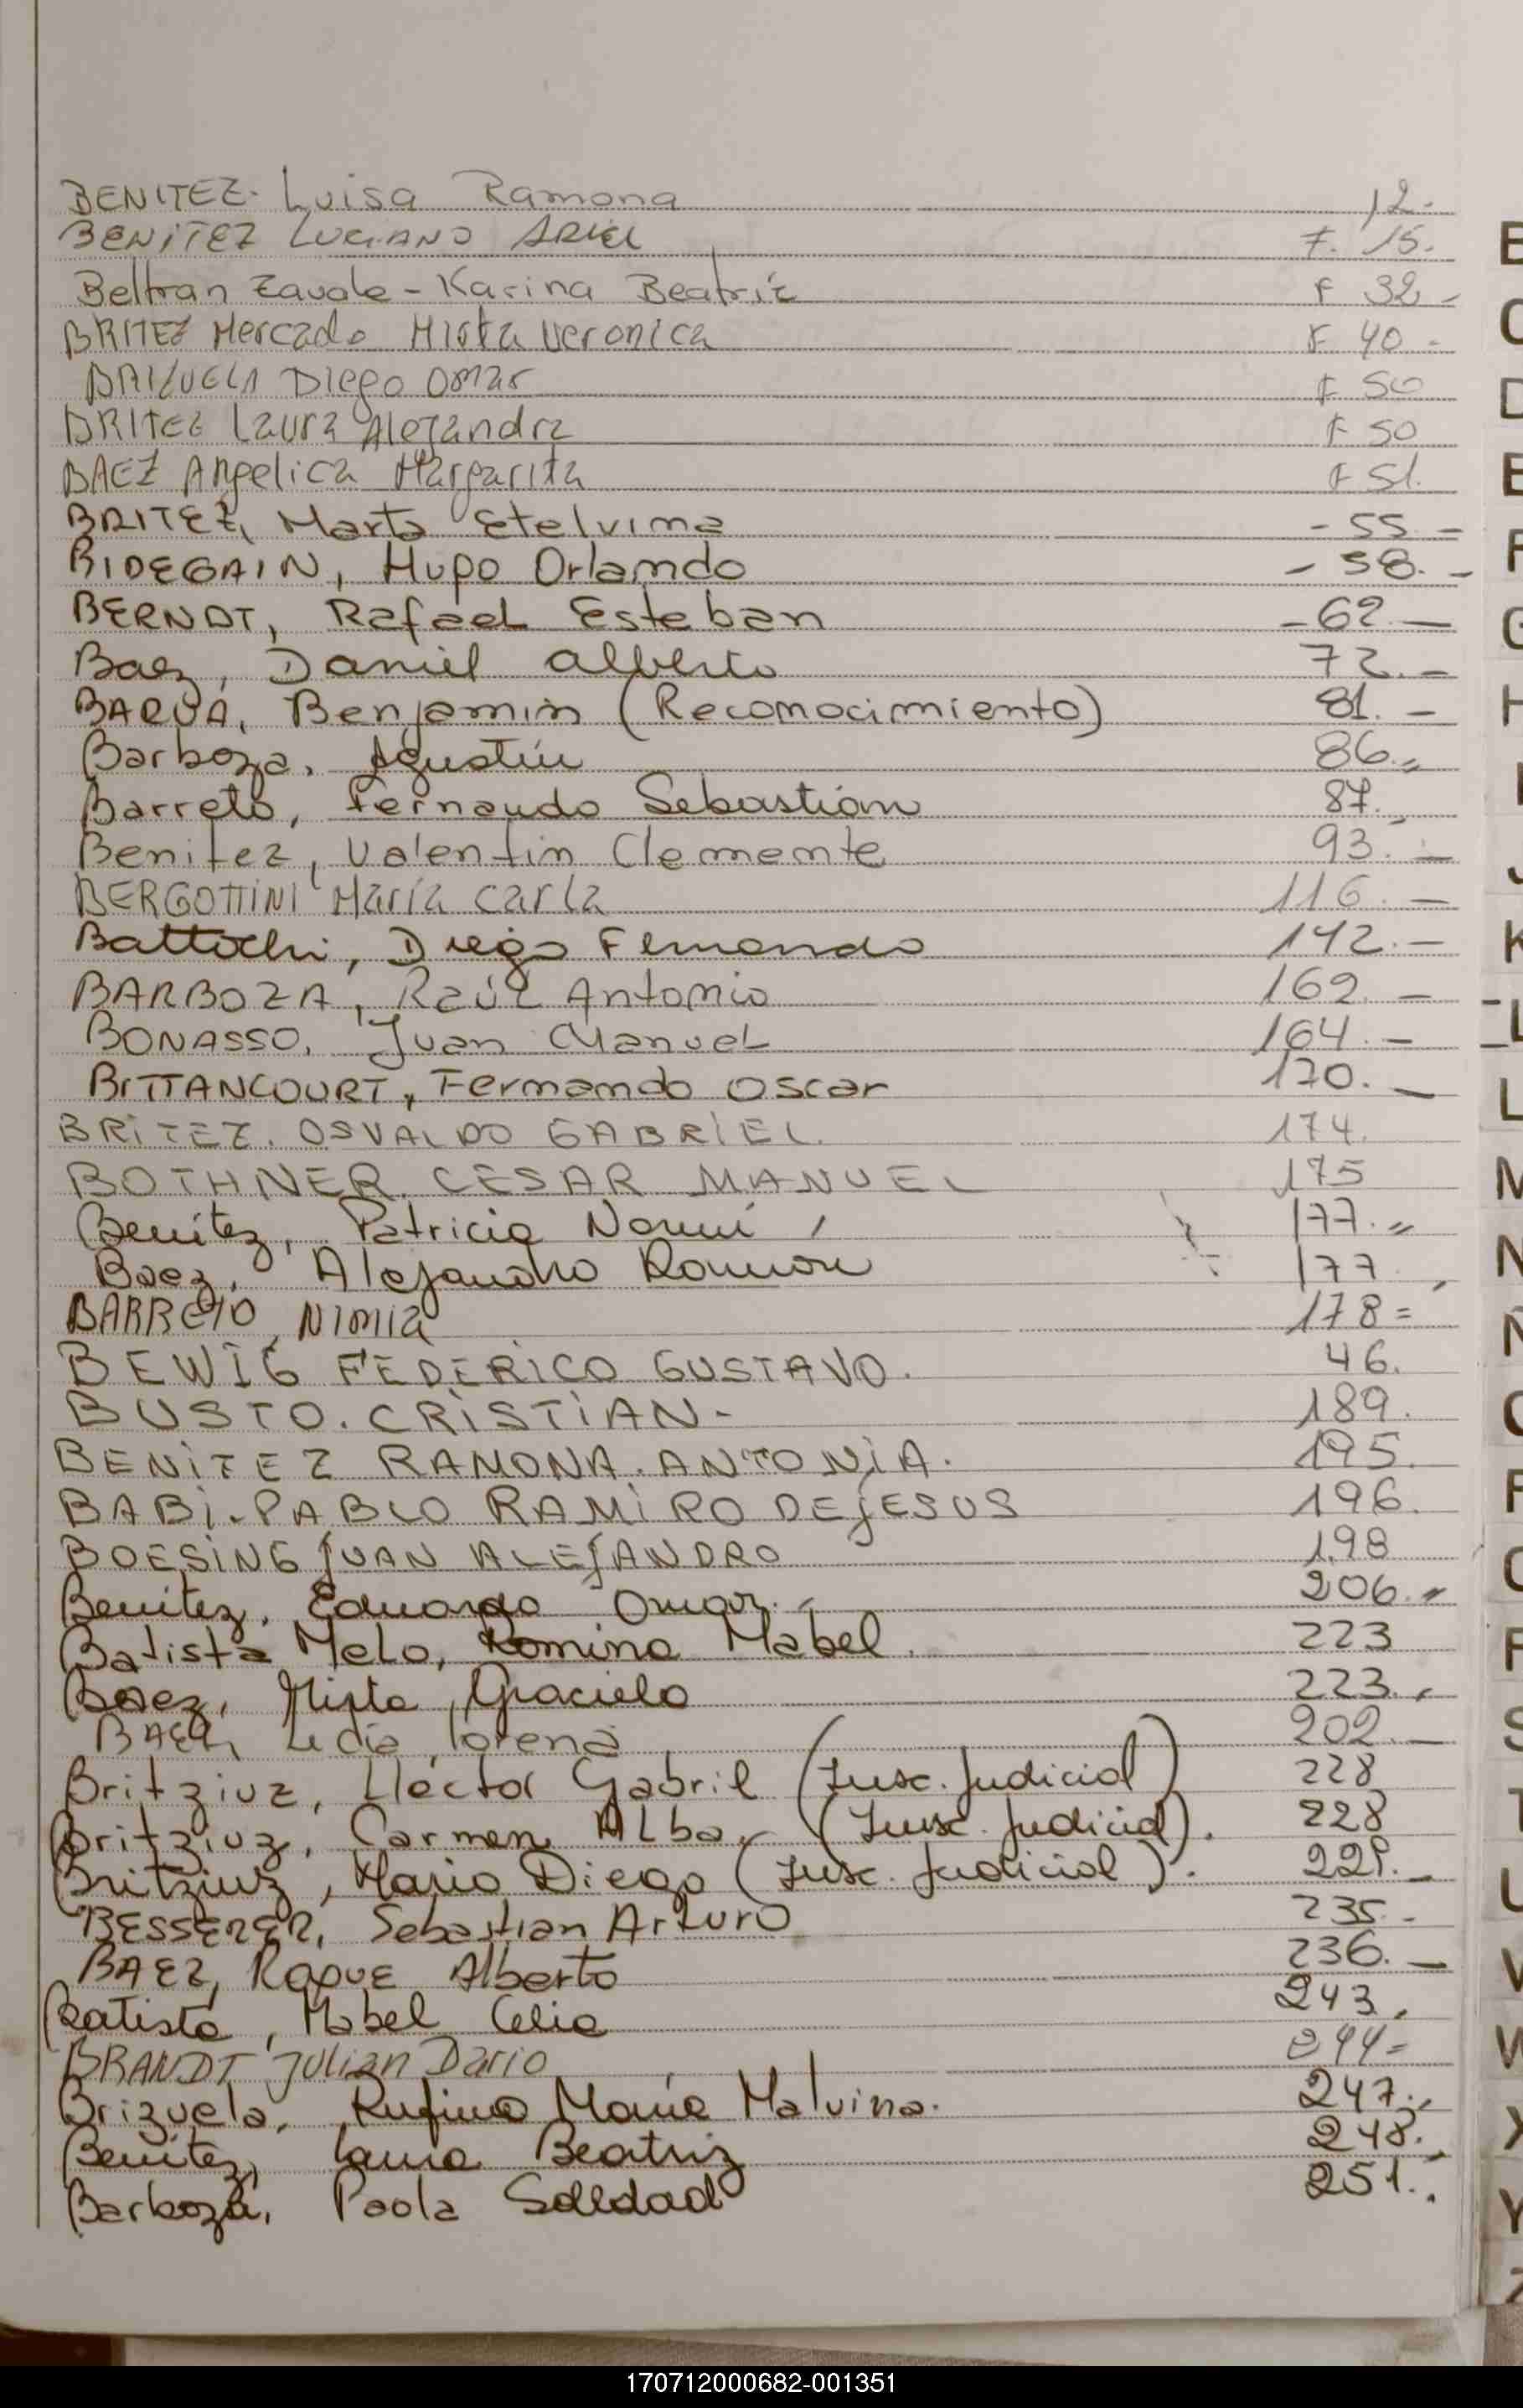 BENITEZ. Luisa Ramona 12.
BENITEZ LUCIANO ARIEL F. 15.
Beltran Zavale - Karina Beatriz F 32 -
BRITEZ Mercado Mirta Veronica F 40 -
BRIZUELA Diego Omar F 50
BRITEZ Laura Alejandra F 50
BAEZ Angelica Margarita F 51.
BRITEZ, Marta Etelvina - 55 -
BIDEGAIN, Hugo Orlando - 58. -
BERNDT, Rafael Esteban - 62. -
Baez, Daniel Alberto 72. -
BARUA, Benjamin (Reconocimiento) 81. -
Barboza, Agustín 86.
Barreto, Fernando Sebastián 87.
Benitez, Valentin Clemente 93. -
BERGOTTINI María Carla 116. -
Battochi, Diego Fernando 142. -
BARBOZA, Raúl Antonio 162. -
BONASSO, Juan Manuel 164. -
BITTANCOURT, Fernando Oscar 170. -
BRITEZ. OSVALDO GABRIEL. 174.
BOTHNER. CESAR MANUEL 175
Benítez, Patricia Noemí 177.
Baez, Alejandro Ramón 177
BARRETO, NIMIA 178 =
BEWIG FEDERICO GUSTAVO. 46.
BUSTO. CRISTIAN - 189.
BENITEZ RAMONA. ANTONIA. 195.
BABI. PABLO RAMIRO DEJESUS 196.
BOESING JUAN ALEJANDRO 198
Benitez, Eduardo Omar. 206.
Batista Melo, Romina Mabel. 223
Baez, Mirta Graciela 223.
BAEZ, Lidia Lorena 202. -
Britziuz, Héctor Gabril (Insc. Judicial) 228
Britziuz, Carmen Alba. (Insc. Judicial). 228
Britziuz, Mario Diego (Insc. Judicial). 229. -
BESSERER, Sebastian Arturo 235. -
BAEZ, Roque Alberto 236. -
Batista, Mabel Celia 243
BRANDT Julian Dario 244 =
Brizuela, Rufina María Malvina. 247.
Benitez, Laura Beatriz 248.
Barboza, Paola Soledad 251.
E
C
D
E
F
G
H
I
J
K
L
L
M
N
Ñ
O
P
Q
R
S
T
U
V
W
X
Y
Z
170712000682-001351